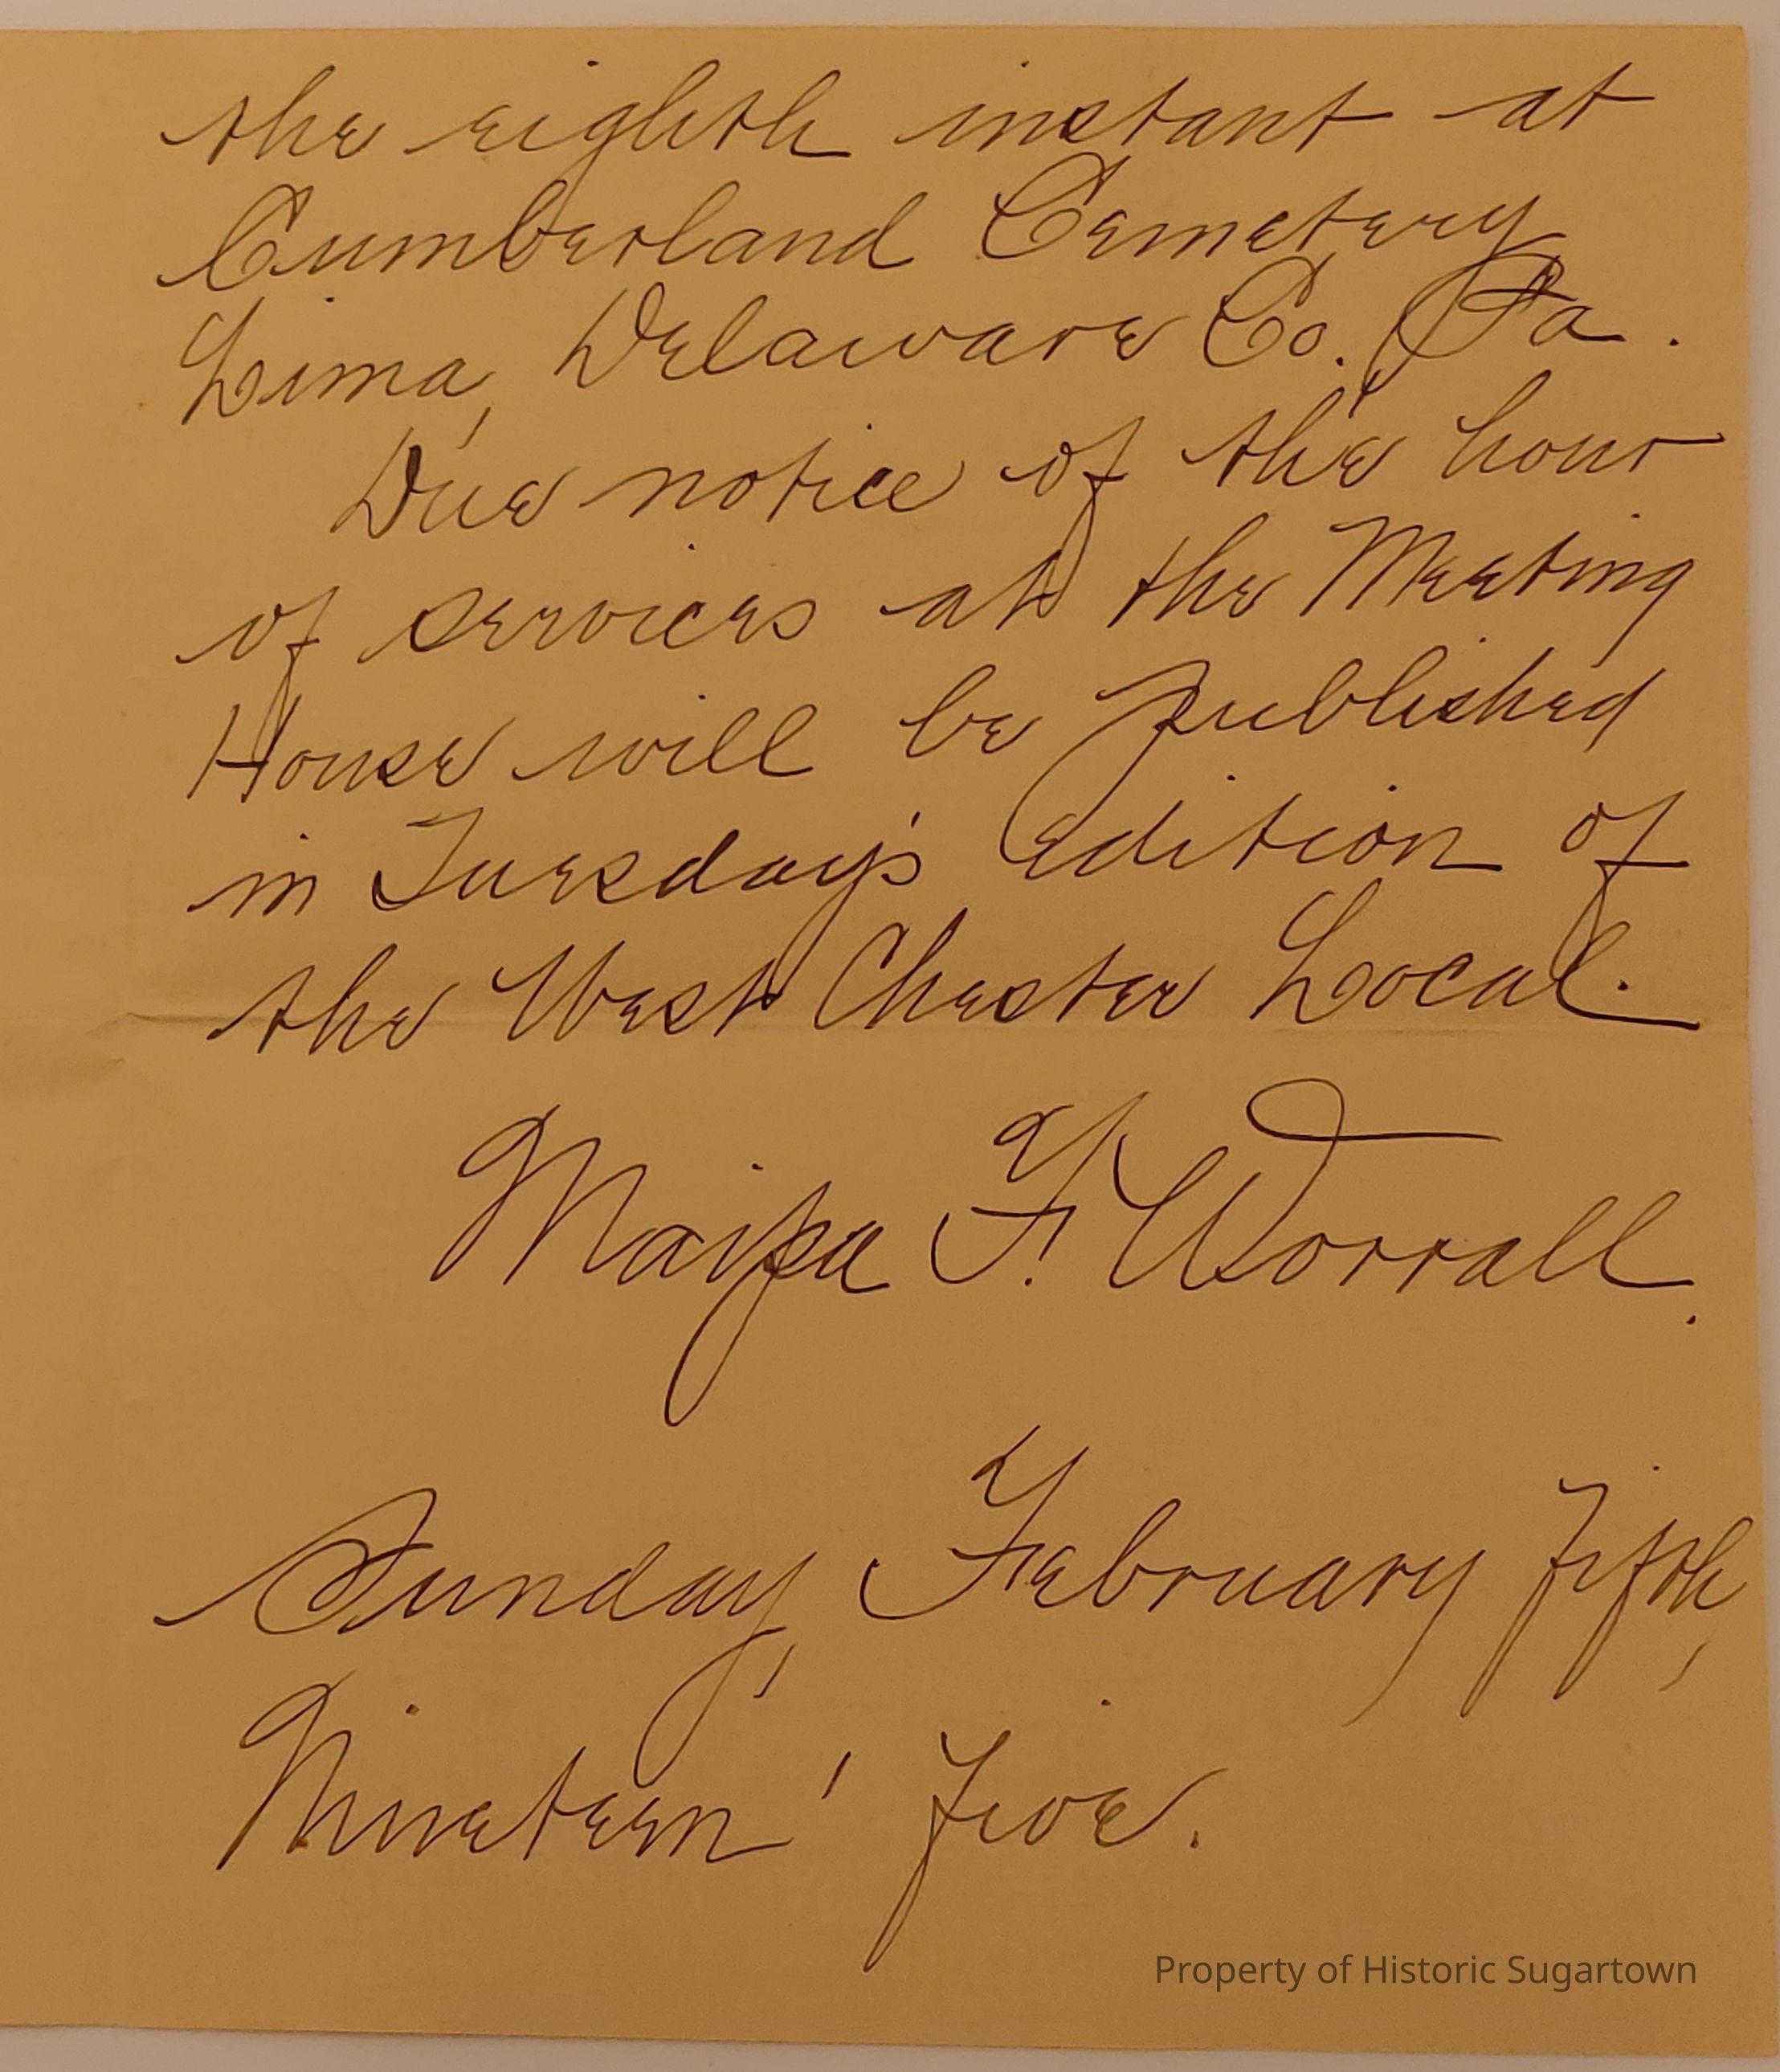 the eighth instant at
Cumberland Cemetery
Lima, Delaware Co. Pa.
Due notice of the hour
of services at the Meeting
House will be published
in Tuesday's edition of
the West Chester Local.
F. Worrall.
Sunday, February fifth,
Nineteen' five.
Property of Historic Sugartown